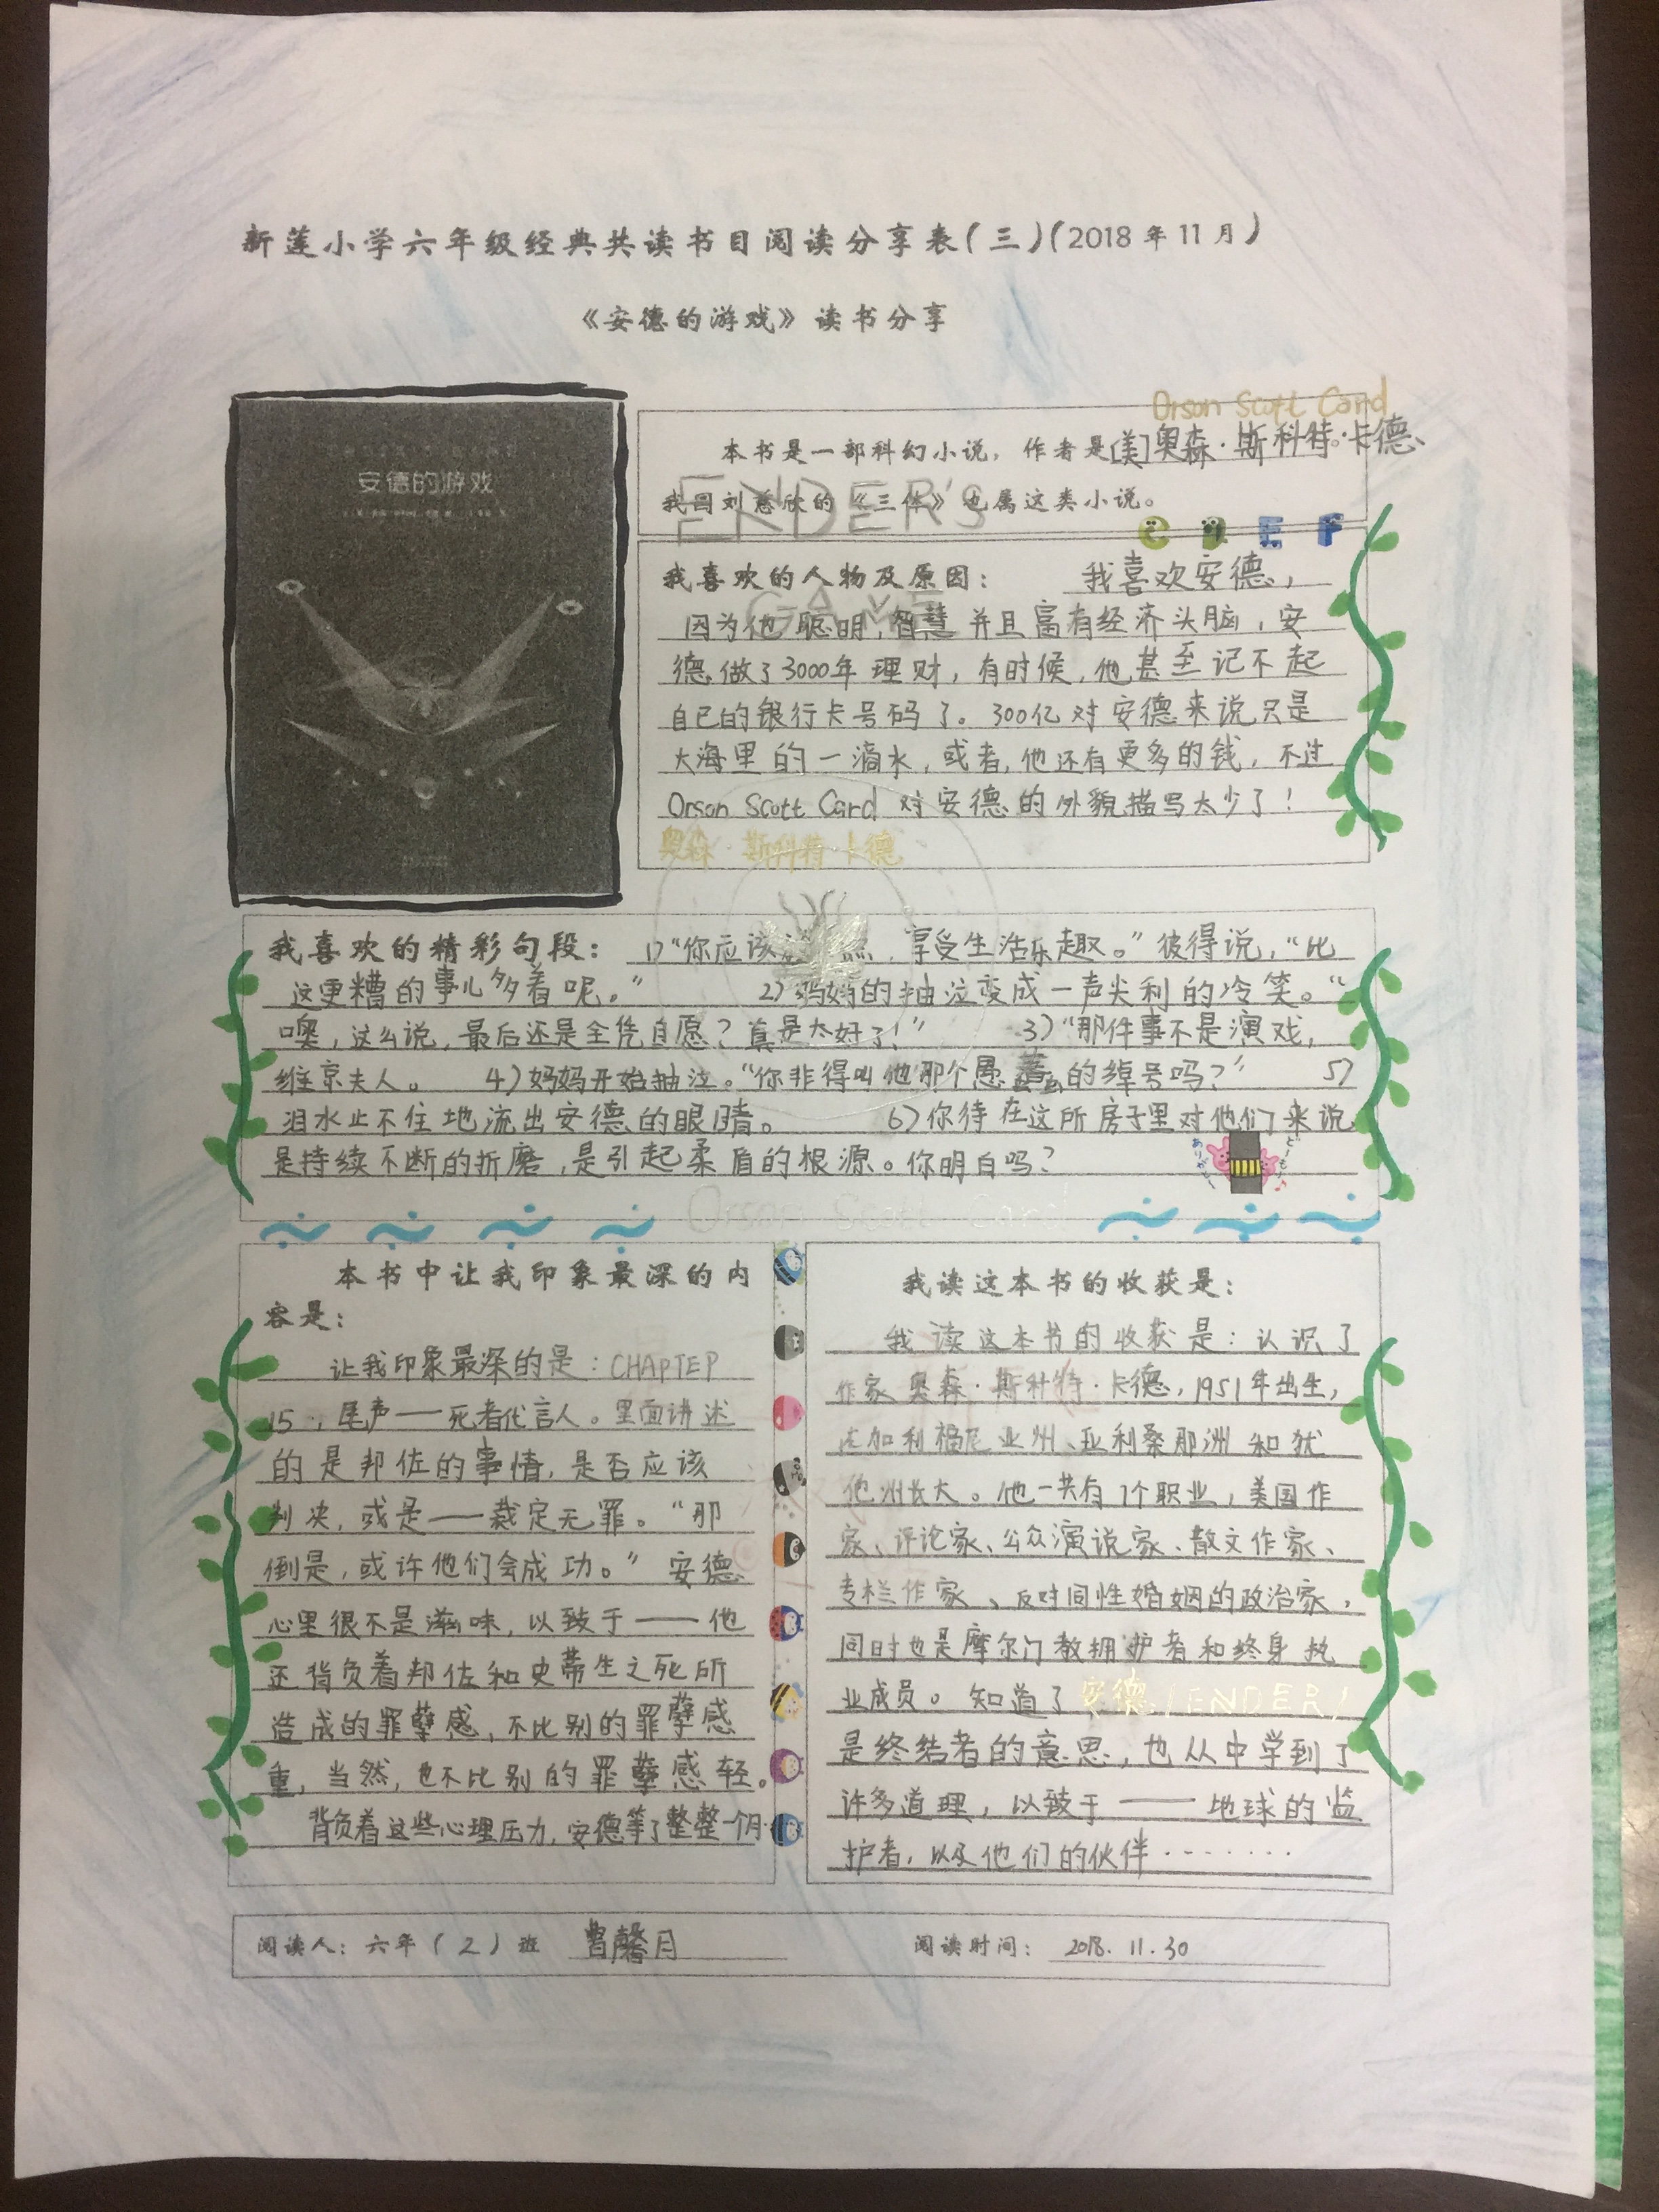 新莲小学六年级经典共读书目阅读分享表(三)(2018年11月)
《安德的游戏》读书分享
安德的游戏
Orson Scott Card
本书是一部科幻小说，作者是[美]奥森·斯科特·卡德、
我国刘慈欣的《三体》也属这类小说。
ENDER'S
GAME
C D E F
我喜欢的人物及原因： 我喜欢安德，
因为他聪明，智慧并且富有经济头脑，安
德做了3000年理财，有时候，他甚至记不起
自己的银行卡号码了。300亿对安德来说只是
大海里的一滴水，或者，他还有更多的钱，不过
Orson Scott Card 对安德的外貌描写太少了！
奥森·斯科特·卡德
我喜欢的精彩句段： 1)“你应该 ，享受生活乐趣。”彼得说，“比
这更糟的事儿多着呢。” 2)妈妈的抽泣变成一声尖利的冷笑。“
噢，这么说，最后还是全凭自愿？真是太好了！” 3)“那件事不是演戏，
维京夫人。 4)妈妈开始抽泣。“你非得叫他那个愚蠢的绰号吗？” 5)
泪水止不住地流出安德的眼睛。 6)你待在这所房子里对他们来说
是持续不断的折磨，是引起柔盾的根源。你明白吗？
Orson Scott Card
本书中让我印象最深的内
容是：
让我印象最深的是：CHAPTEP
15．，尾声——死者代言人。里面讲述
的是邦佐的事情，是否应该
判决，或是——裁定无罪。“那
倒是，或许他们会成功。” 安德
心里很不是滋味，以致于——他
还背负着邦佐和史蒂生之死所
造成的罪孽感，不比别的罪孽感
重，当然，也不比别的罪孽感轻。
背负着这些心理压力，安德等了整整一个月.
我读这本书的收获是：
我读这本书的收获是：认识了
作家奥森·斯科特·卡德，1951年出生，
在加利福尼亚州、亚利桑那洲和犹
他州长大。他一共有7个职业，美国作
家、评论家、公众演说家、散文作家、
专栏作家、反对同性婚姻的政治家，
同时也是摩尔门教拥护者和终身执
业成员。知道了安德(ENDER)
是终结者的意思，也从中学到了
许多道理，以致于——地球的监
护者，以及他们的伙伴········
阅读人：六年（2）班 曾馨月 阅读时间： 2018.11.30